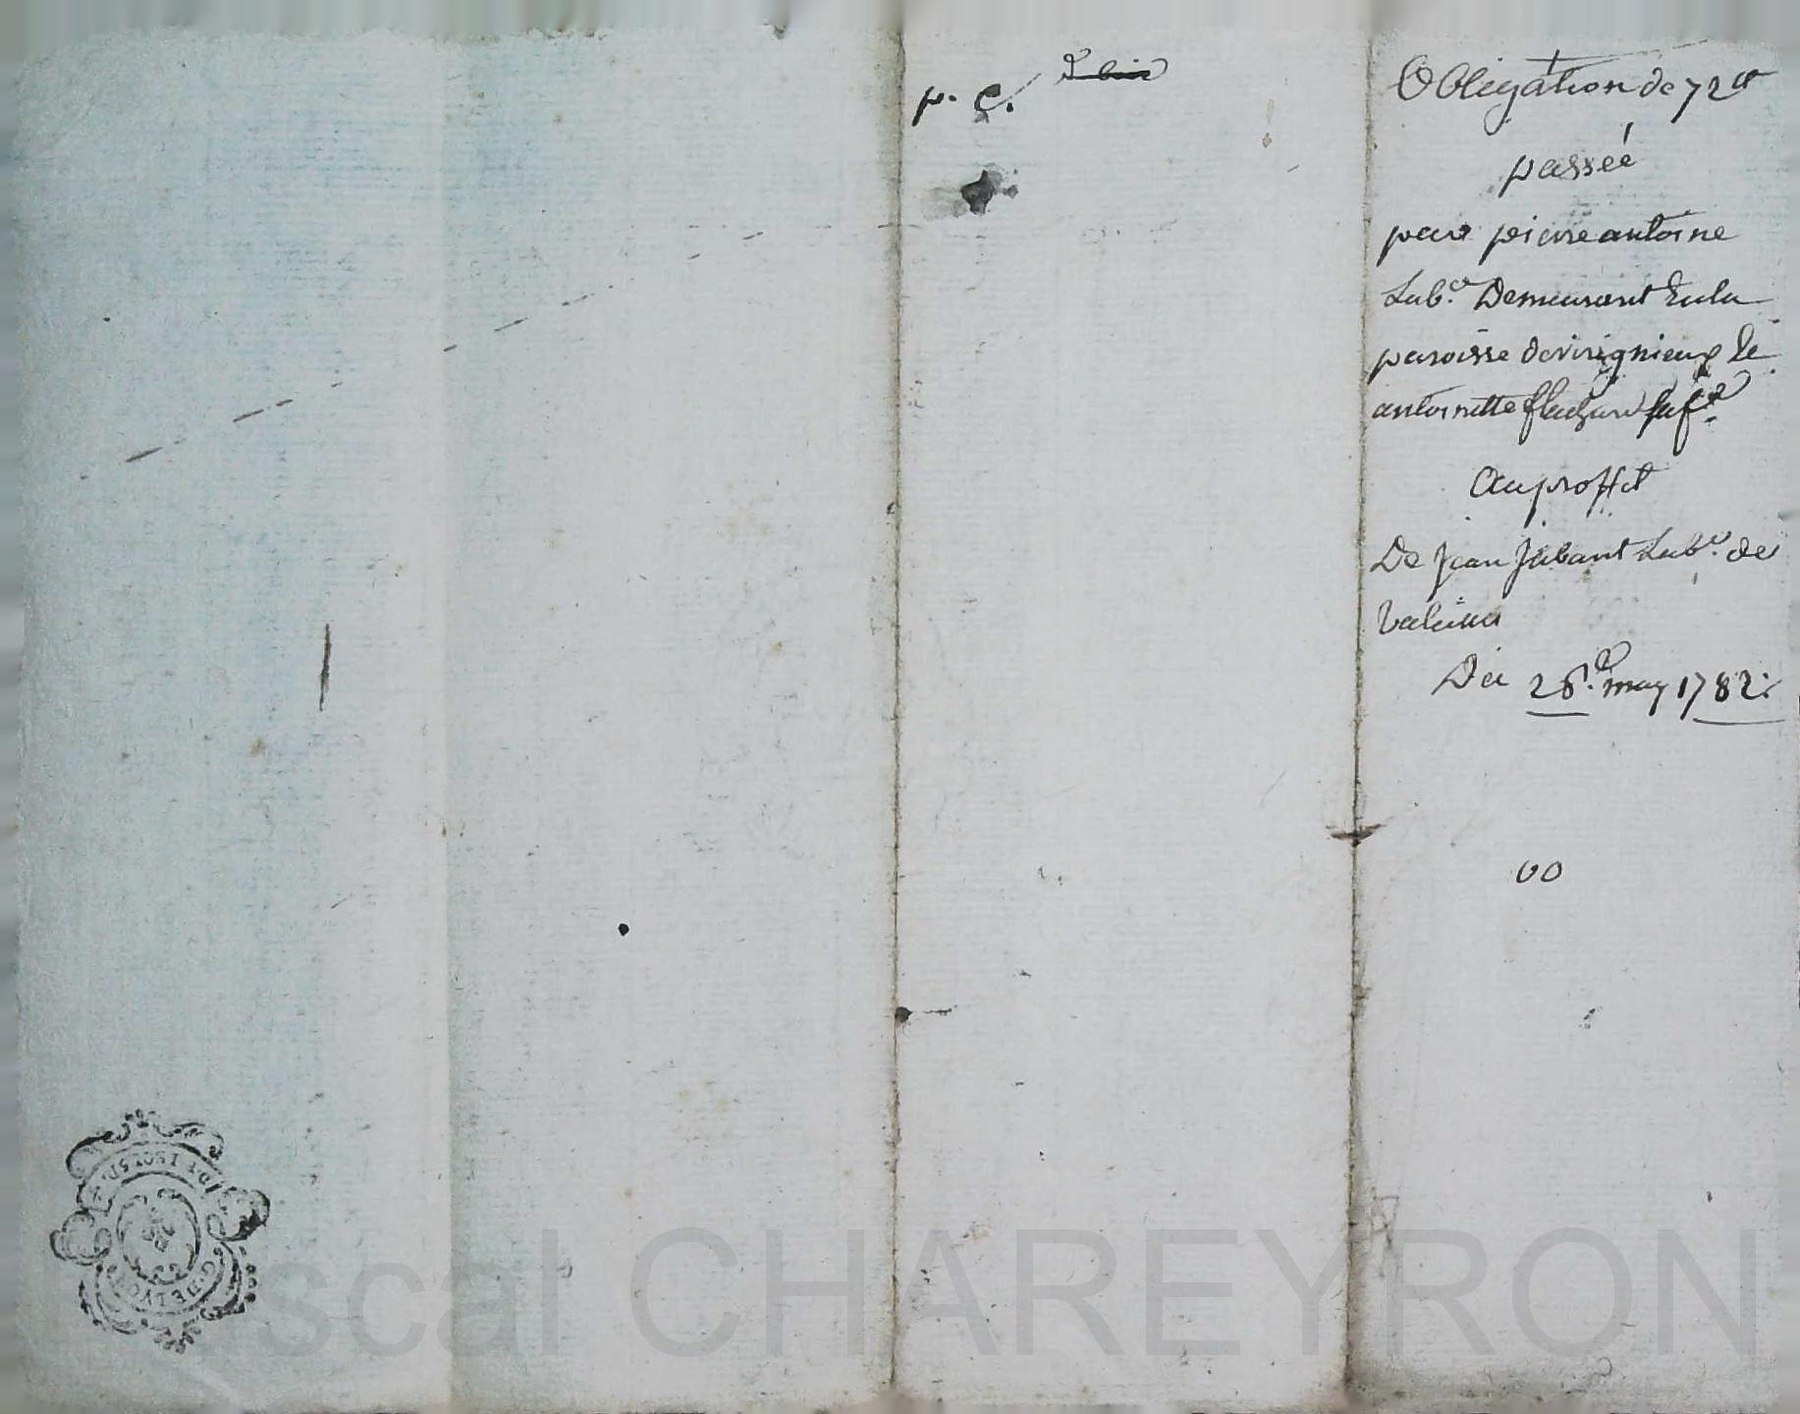 p. c.
Obligation de 72 tt
passéé
par pierre antoine
Lab.r Demeurant En la
paroisse de virignieux Et
antoinette flachard sa f.e
Au proffit
De Jean Jubant Lab.r de
Valeille
Du 26.e may 1782.
00
G. DE LYON
Pascal CHAREYRON